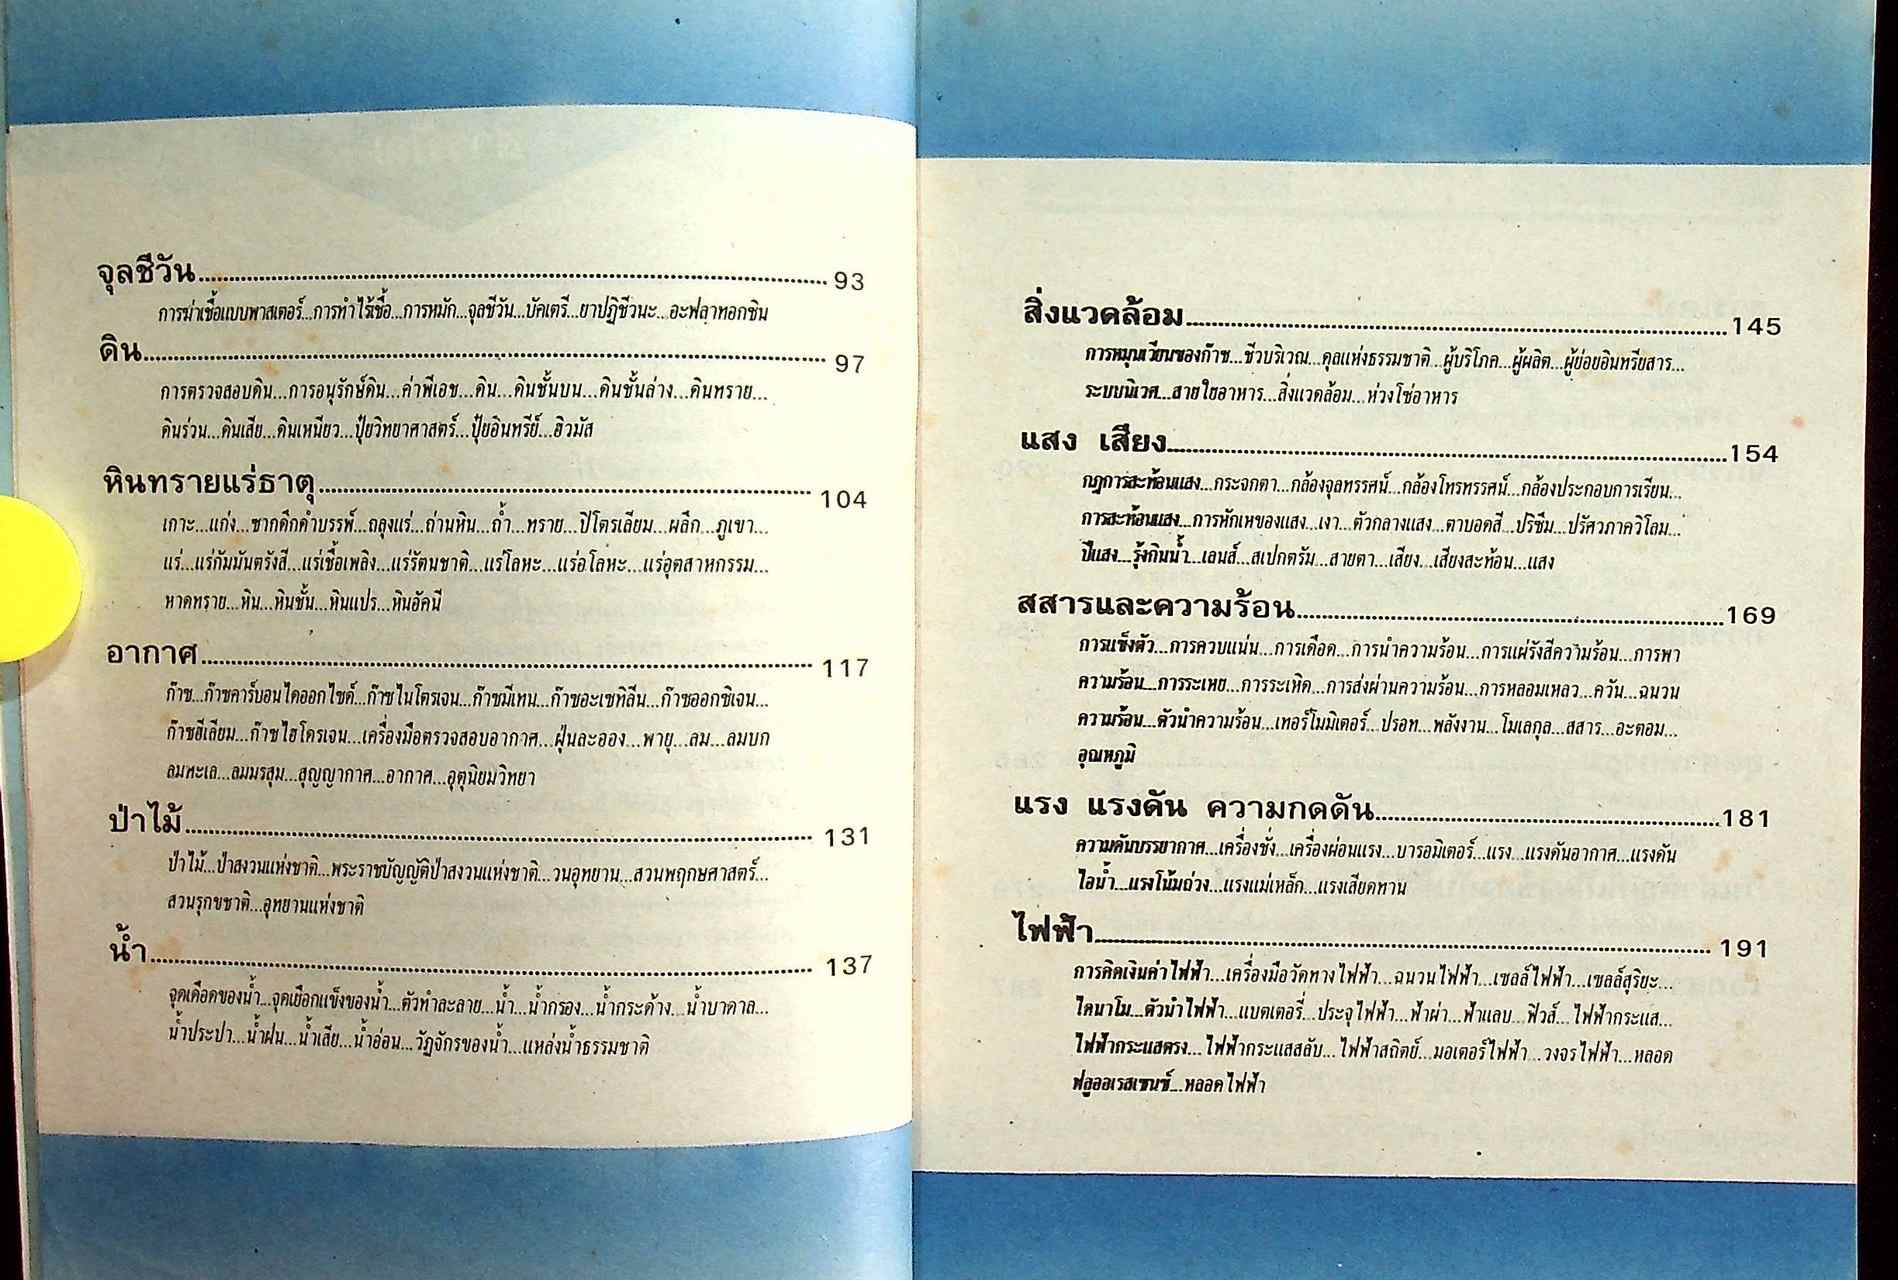 จุลชีวัน........................................93
การฆ่าเชื้อแบบพาสเตอร์...การทำไร้เชื้อ...การหมัก...จุลชีวัน...บัคเตรี...ยาปฏิชีวนะ...อะฟลาทอกซิน
ดิน........................................97
การตรวจสอบดิน...การอนุรักษ์ดิน...ค่าพีเอช...ดิน...ดินชั้นบน...ดินชั้นล่าง...ดินทราย...
ดินร่วน...ดินเสีย...ดินเหนียว...ปุ๋ยวิทยาศาสตร์...ปุ๋ยอินทรีย์...ฮิวมัส
หินทรายแร่ธาตุ........................................104
เกาะ...แก่ง...ซากดึกดำบรรพ์...ถลุงแร่...ถ่านหิน...ถ้ำ...ทราย...ปิโตรเลียม...ผลึก...ภูเขา...
แร่...แร่กัมมันตรังสี...แร่เชื้อเพลิง...แร่รัตนชาติ...แร่โลหะ...แร่อโลหะ...แร่อุตสาหกรรม...
หาดทราย...หิน...หินชั้น...หินแปร...หินอัคนี
อากาศ........................................117
ก๊าซ...ก๊าซคาร์บอนไดออกไซด์...ก๊าซไนโตรเจน...ก๊าซมีเทน...ก๊าซอะเซทิลีน...ก๊าซออกซิเจน...
ก๊าซฮีเลียม...ก๊าซไฮโดรเจน...เครื่องมือตรวจสอบอากาศ...ฝุ่นละออง...พายุ...ลม...ลมบก
ลมทะเล...ลมมรสุม...สุญญากาศ...อากาศ...อุตุนิยมวิทยา
ป่าไม้........................................131
ป่าไม้...ป่าสงวนแห่งชาติ...พระราชบัญญัติป่าสงวนแห่งชาติ...วนอุทยาน...สวนพฤกษศาสตร์...
สวนรุกขชาติ...อุทยานแห่งชาติ
น้ำ........................................137
จุดเดือดของน้ำ...จุดเยือกแข็งของน้ำ...ตัวทำละลาย...น้ำ...น้ำกรอง...น้ำกระด้าง...น้ำบาดาล...
น้ำประปา...น้ำฝน...น้ำเสีย...น้ำอ่อน...วัฏจักรของน้ำ...แหล่งน้ำธรรมชาติ
สิ่งแวดล้อม........................................145
การหมุนเวียนของก๊าซ...ชีวบริเวณ...ดุลแห่งธรรมชาติ...ผู้บริโภค...ผู้ผลิต...ผู้ย่อยอินทรียสาร...
ระบบนิเวศ...สายใยอาหาร...สิ่งแวดล้อม...ห่วงโซ่อาหาร
แสง เสียง........................................154
กฎการสะท้อนแสง...กระจกตา...กล้องจุลทรรศน์...กล้องโทรทรรศน์...กล้องประกอบการเรียน...
การสะท้อนแสง...การหักเหของแสง...เงา...ตัวกลางแสง...ตาบอดสี...ปริซึม...ปรัศวภาควิโลม...
ปีแสง...รุ้งกินน้ำ...เลนส์...สเปกตรัม...สายตา...เสียง...เสียงสะท้อน...แสง
สสารและความร้อน........................................169
การแข็งตัว...การควบแน่น...การเดือด...การนำความร้อน...การแผ่รังสีความร้อน...การพา
ความร้อน...การระเหย...การระเหิด...การส่งผ่านความร้อน...การหลอมเหลว...ควัน...ฉนวน
ความร้อน...ตัวนำความร้อน...เทอร์โมมิเตอร์...ปรอท...พลังงาน...โมเลกุล...สสาร...อะตอม...
อุณหภูมิ
แรง แรงดัน ความกดดัน........................................181
ความดันบรรยากาศ...เครื่องชั่ง...เครื่องผ่อนแรง...บารอมิเตอร์...แรง...แรงดันอากาศ...แรงดัน
ไอน้ำ...แรงโน้มถ่วง...แรงแม่เหล็ก...แรงเสียดทาน
ไฟฟ้า........................................191
การคิดเงินค่าไฟฟ้า...เครื่องมือวัดทางไฟฟ้า...ฉนวนไฟฟ้า...เซลล์ไฟฟ้า...เซลล์สุริยะ...
ไดนาโม...ตัวนำไฟฟ้า...แบตเตอรี่...ประจุไฟฟ้า...ฟ้าผ่า...ฟ้าแลบ...ฟิวส์...ไฟฟ้ากระแส...
ไฟฟ้ากระแสตรง...ไฟฟ้ากระแสสลับ...ไฟฟ้าสถิตย์...มอเตอร์ไฟฟ้า...วงจรไฟฟ้า...หลอด
ฟลูออเรสเซนซ์...หลอดไฟฟ้า